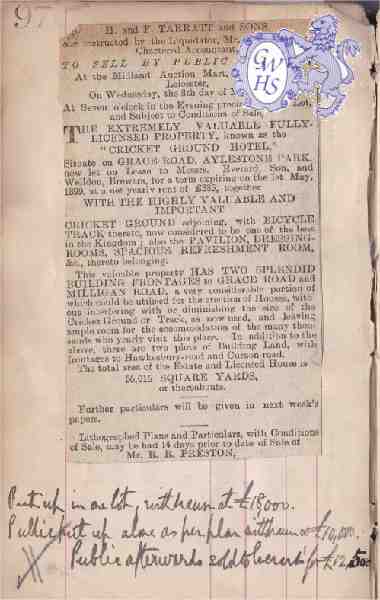 97
H. and F. TARRATT and SONS
are instructed by the Liquidator, Mr.
Chartered Accountant,
TO SELL BY PUBLIC
At the Midland Auction Mart,
Leicester,
On Wednesday, the 8th day of
At Seven o'clock in the Evening Lot,
and Subject to Conditions of Sale,
THE EXTREMELY VALUABLE FULLY-
LICENSED PROPERTY, known as the
"CRICKET GROUND HOTEL,"
Situate on GRACE ROAD, AYLESTONE PARK,
now let on Lease to Messrs. Everard, Son, and
Welldon, Brewers, for a term expiring on the 1st May,
1899, at a net yearly rent of £385, together
WITH THE HIGHLY VALUABLE AND
IMPORTANT
CRICKET GROUND adjoining, with BICYCLE
TRACK thereto, now considered to be one of the best
in the Kingdom; also the PAVILION, DRESSING-
ROOMS, SPACIOUS REFRESHMENT ROOM,
&c., thereto belonging.
This valuable property HAS TWO SPLENDID
BUILDING FRONTAGES to GRACE ROAD and
MILLIGAN ROAD, a very considerable portion of
which could be utilised for the erection of Houses, with-
out interfering with or diminishing the size of the
Cricket Ground or Track, as now used, and leaving
ample room for the accommodation of the many thou-
sands who yearly visit this place. In addition to the
above, there are two plots of Building Land, with
frontages to Hawkesbury-road and Curzon-road.
The total area of the Estate and Licensed House is
SQUARE YARDS,
or thereabouts.
Further particulars will be given in next week's
papers.
Lithographed Plans and Particulars, with Conditions
of Sale, may be had 14 days prior to date of Sale of
Mr. R. B. PRESTON,
Put up in one lot, withdrawn at £18,000.
Public put up alone as per plan withdrawn at £10,000.
Public afterwards sold to Everards for £12,500
GWHS